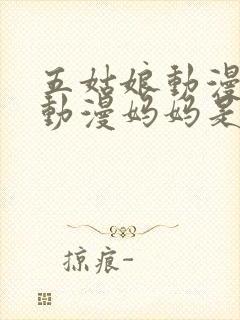 五姑娘動漫
動漫妈妈是
掠痕-